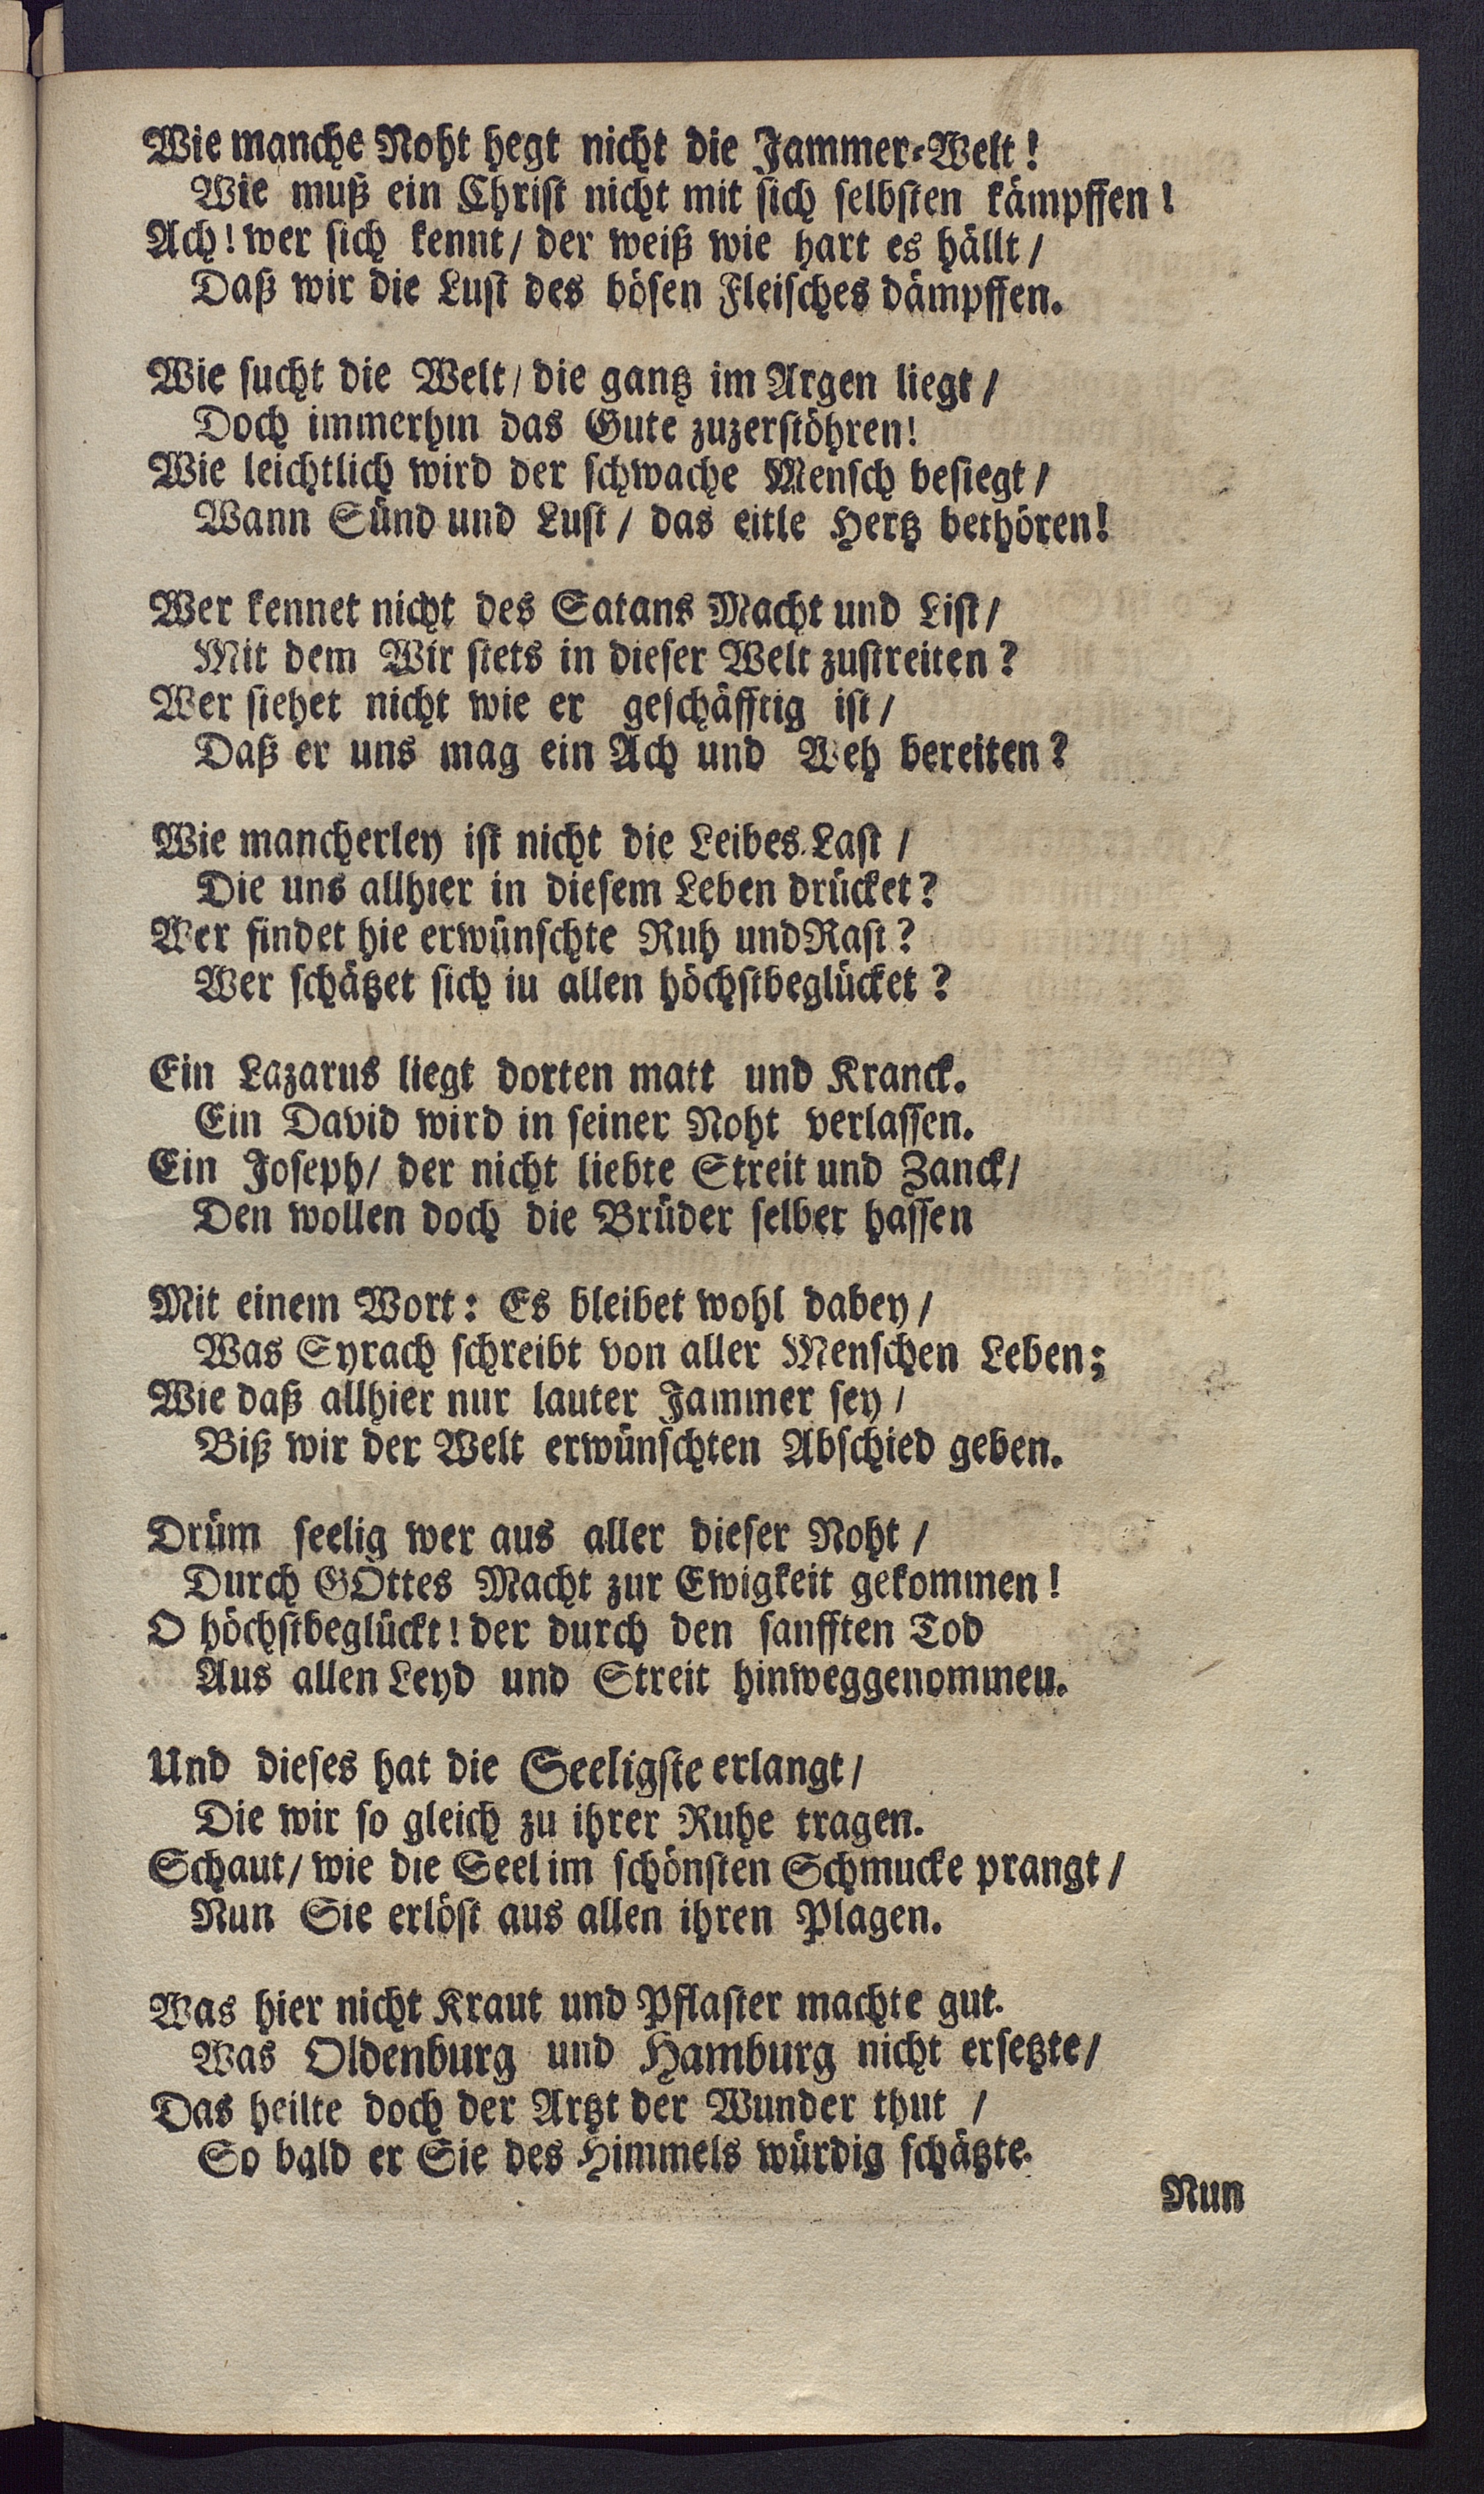 Wie manche Noht hegt nicht die Jammer-Welt!
Wie muß ein Christ nicht mit sich selbsten kämpffen!
Ach! wer sich kennt/ der weiß wie hart es hällt/
Daß wir die Lust des bösen Fleisches dämpffen.
Wie sucht die Welt/ die gantz im Argen liegt/
Doch immerhin das Gute zuzerstöhren!
Wie leichtlich wird der schwache Mensch besiegt/
Wann Sünd und Lust/ das eitle Hertz bethören!
Wer kennet nicht des Satans Macht und List/
Mit dem Wir stets in dieser Welt zustreiten?
Wer siehet nicht wie er geschäfftig ist/
Daß er uns mag ein Ach und Weh bereiten?
Wie mancherley ist nicht die Leibes-Last/
Die uns allhier in diesem Leben drücket?
Wer findet hie erwünschte Ruh undRast?
Wer schätzet sich iu allen höchstbeglücket?
Ein Lazarus liegt dorten matt und Kranck.
Ein David wird in seiner Noht verlassen.
Ein Joseph/ der nicht liebte Streit und Zanck/
Den wollen doch die Brüder selber hassen
Mit einem Wort: Es bleibet wohl dabey/
Was Syrach schreibt von aller Menschen Leben;
Wie daß allhier nur lauter Jammer sey/
Biß wir der Welt erwünschten Abschied geben.
Drüm seelig wer aus aller dieser Noht/
Durch GOttes Macht zur Ewigkeit gekommen!
O höchstbeglückt! der durch den sanfften Tod
Aus allen Leyd und Streit hinweggenommeu.
Und dieses hat die Seeligste erlangt/
Die wir so gleich zu ihrer Ruhe tragen.
Schaut/ wie die Seel im schönsten Schmucke prangt/
Nun Sie erlöst aus allen ihren Plagen.
Was hier nicht Kraut und Pflaster machte gut.
Was Oldenburg und Hamburg nicht ersetzte/
Das heilte doch der Artzt der Wunder thut/
So bald er Sie des Himmels würdig schätzte.
Nun